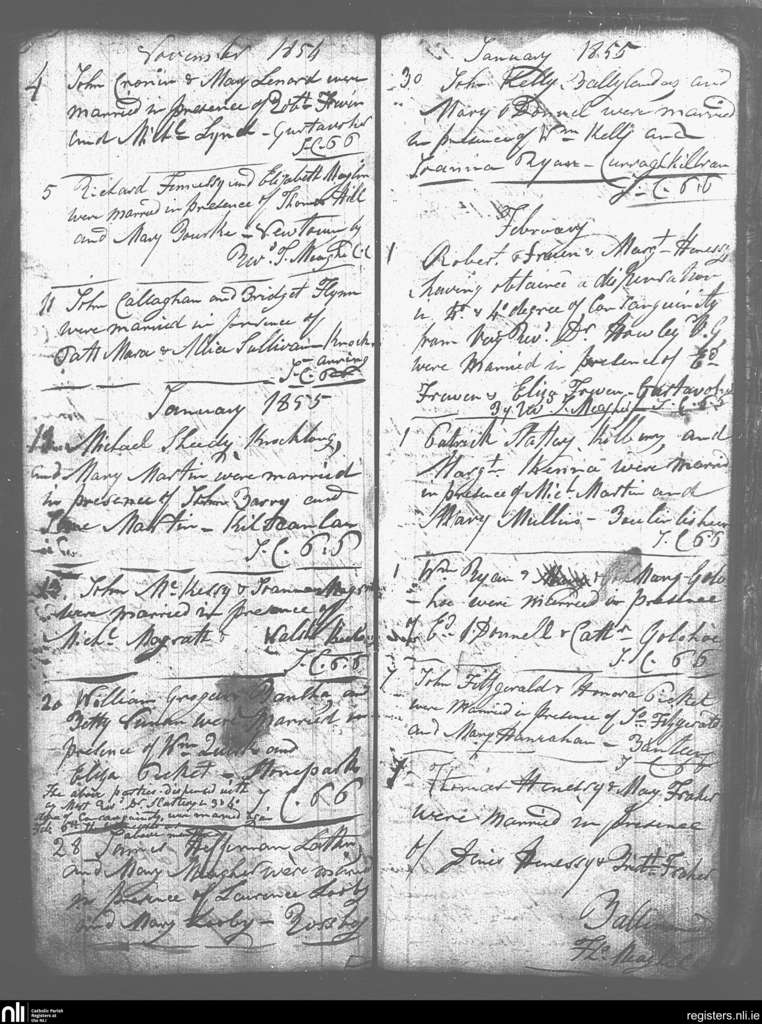 November 1854
4 John Cronin & Mary Lenard were
married in presence of Robt Frewin
and Michl Lynch - Gustavoher
J. C. 6 6
5 Richard Fennessy and Elizabeth
were married in presence of Thomas Hill
and Mary Bourke - Newtown by
Revd T. Meagher C. C.
11 John Callaghan and Bridget Flynn
were married in presence of
Patt Mara & Allice Sullivan - Knock
J. C. 6 6
January 1855
Michael Sheedy Knocklong,
and Mary Martin were married
in presence of John Barry and
Jane Martin - Kilteanlan
J. C. 6 . 6
John Mc Kessy & Joanna
were married in presence of
Michl Magrath &
J. C. 6 . 6
20 William Bantha and
Betty were married in
presence of Wm Quirk and
Eliza Picket - Stonepark
J C. 6 6
The above parties dispensed with
by Most Revd Dr Slattery in 3 & 4
degree of Consanguinity, were married again
28 James Heffernan Lattin
and Mary Meagher were married
in presence of Laurence Looby
and Mary Looby - Rossboy
January 1855
30 John Kelly Ballylanders and
Mary O Donnel were married
in presence of Wm Kelly and
Joanna Ryan - Curraghkilbran
J. C. 6.6
February
1 Robert Frewen & Margt Henessy
having obtained a dispensation
in 4o & 4o degree of Consanguinity
from Very Revd Dr Howley V. G
were married in presence of Ed
Frewen & Eliza Frewen - Gustavoher
By Rev T. Meagher - J. C. 6 6
1 Patrick Slattery, Kilbury, and
Margt Kenna were married
in presence of Michl Martin and
Mary Mullins -
J C 6 6
1 Wm Ryan & Mary Golo
hoe were married in presence
of Ed O. Donnell & Cathr Golohoe
J. C. 6 6
7 John Fitzgerald & Honora Picket
were married in presence of Jn Fitzgerald
and Mary Hanrahan -
J C 6 6
Thomas Henessy & Mary Fraher
were married in presence
of Henessy & Fraher
Thos Meagher C
nli
Catholic Parish
Registers at
the NLI
registers.nli.ie